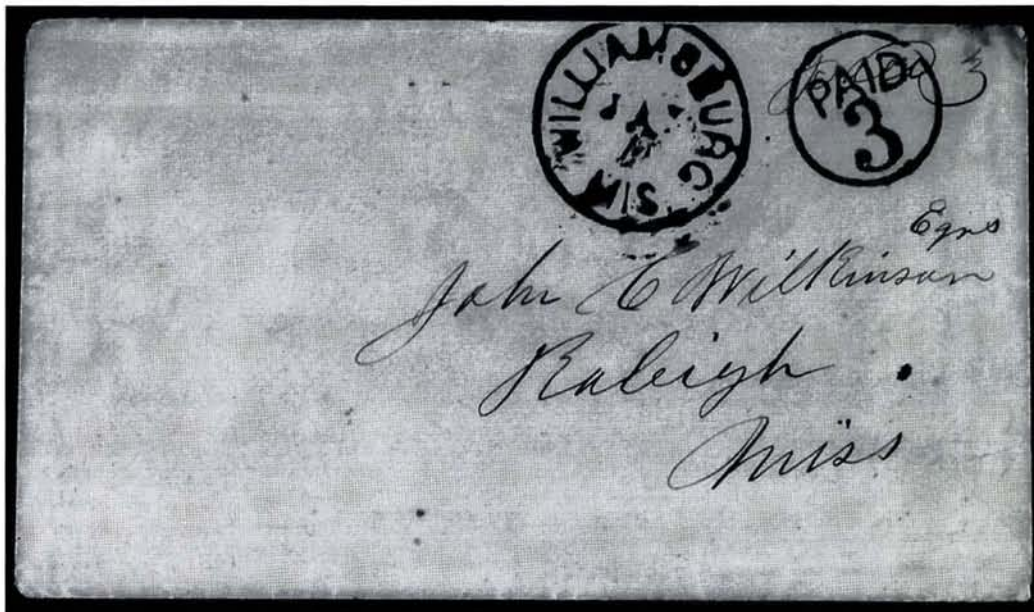 WILLIAMSBURG MIS
JA
PAID 3
Paid 3
John C Wilkinson Eqrs
Raleigh
Miss